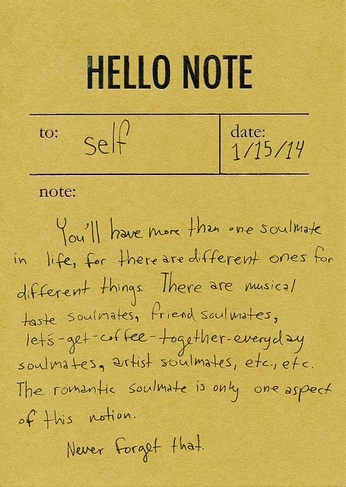 HELLO NOTE
to: self
date: 1/15/14
note:
You'll have more than one soulmate
in life, for there are different ones for
different things. There are musical
taste soulmates, friend soulmates,
let's-get-coffee-together-everyday
soulmates, artist soulmates, etc., etc.
The romantic soulmate is only one aspect
of this notion.
Never forget that.